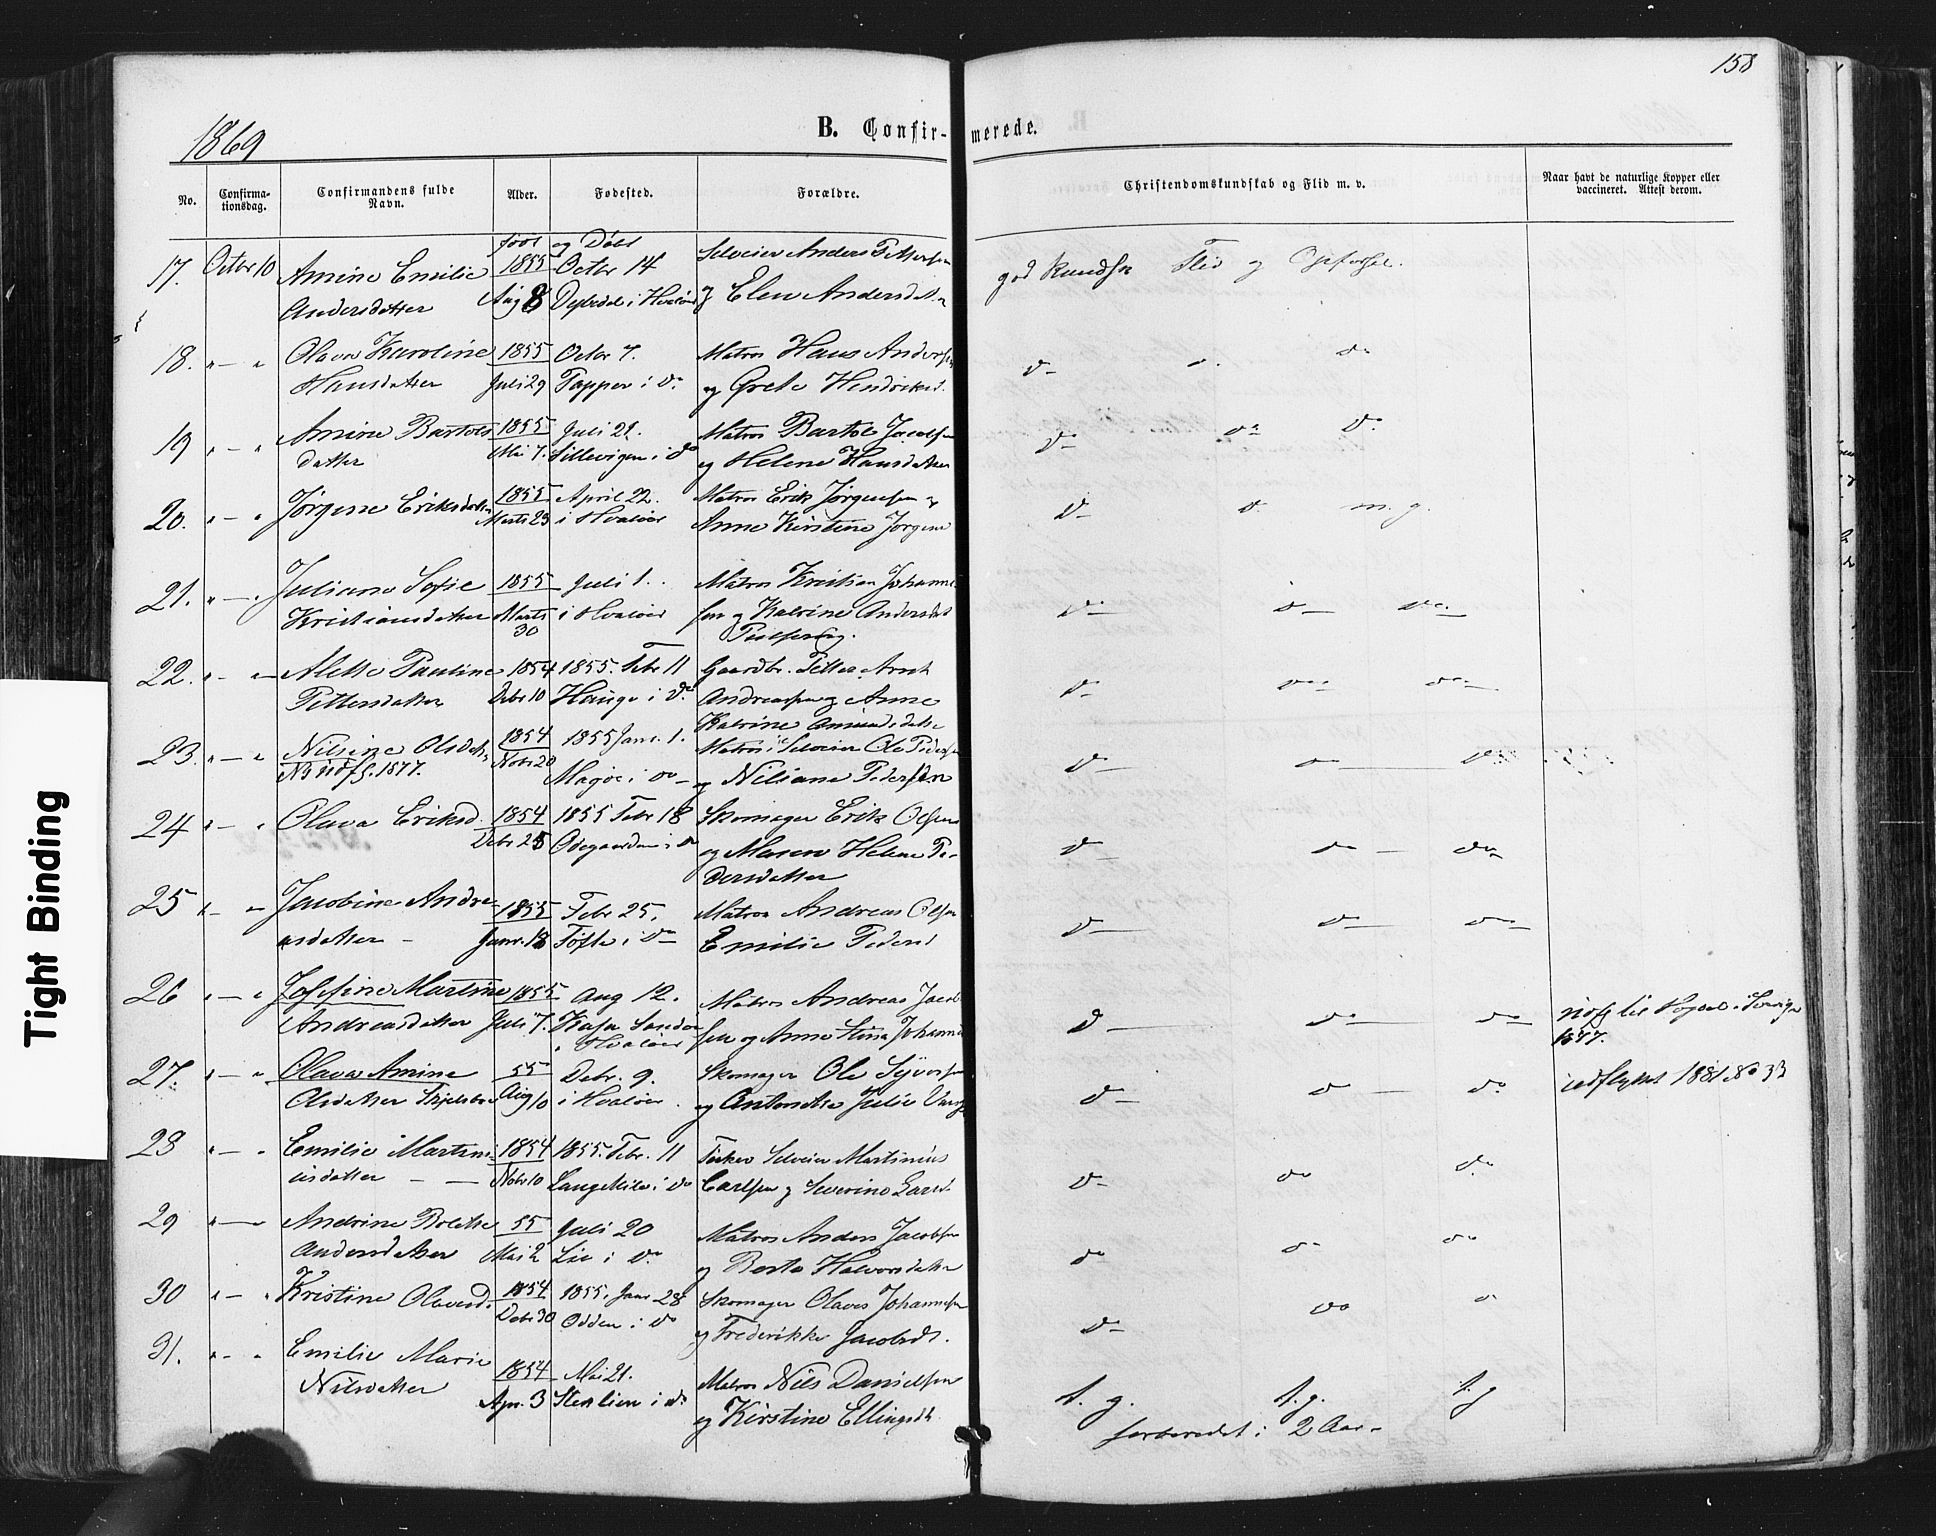 158
1869
B. Confir-merede.
No.
Confirma-
tionsdag.
Confirmandens fulde
Navn.
Alder.
Fødested.
Forældre.
Christendomskundskab og Flid m. v.
Naar havt de naturlige Kopper eller
vaccineret. Attest derom.
født og Døbt
17. Octbr 10 Amine Emilie 1855 Octbr 14 Selveier Anders
Andersdatter Aug 8 Dybedal i Hvaløer og Elen Andersdatter
god Kundsk Flid og Opførsel.
18. " — " Olava Karoline 1855 Octbr 7. Matros Hans Andersen
Hansdatter Juli 29 Papper i do og Grete Hendriksd.
do do
19 " — " Amine Bartols 1855 Juli 21. Matros Bartol Jacobsen
datter Mai 7. Lillevigen i do og Helene Hansdatter
do do do
20. " — " Jørgine Eriksdatter 1855 April 22. Matros Erik Jørgensen og
Marts 23 i Hvaløer Anne Kirstine Jørgens
do do m. g.
21. " — " Juliane Sofie 1855 Juli 1. Matros Kristian Johanne
Kristiansdatter Marts i Hvaløer sen og Katrine Andersdat
30
do do do
22. " — " Alette Pauline 1854 1855. Febr 11 Gaardbr. Petter Arnt
Pettersdatter Debr 10 Hauge i do Andreasen og Anne
Katrine Amundsdatter
do do do
23. " — " Nilsine Olsdatter 1854 1855 Janr. 1. Matros i Selveier Ole Pedersen
No 1877. Nobr 20 Magøe i do og Niliane Pedersen
do do do
24 " — " Olava Eriksd. 1854 1855 Febr 18 Skomager Erik Olsen
Debr 25 Ødegaarden i do og Maren Helene Pe-
dersdatter
do do do
25 " — " Jacobine Andre- 1855 Febr 25. Matros Andreas Olsen
asdatter Janr. 18 Tofte i do Emilie Pedersd
do do do
26 " — " Josefine Martine 1855 Aug 12. Matros Andreas Jacob
Andreasdatter Juli 7. Kasa Sandø sen og Anne Stina Johanne
i Hvaløer
do do do
1877.
27. " — " Olava Amine 55 Debr. 9. Skomager Ole Syversen
Olsdatter Aug 10 i Hvaløer og Antonette Julie
do do do
udflyttet 1881 No 33
28 " — " Emilie Martini- 1854 1855. Febr. 11 Fisker Selveier Martinius
usdatter Nobr 10 Langekile i do Carlsen og Severine Larsd.
do do do
29 " — " Andrine Bolette 55 Juli 20 Matros Anders Jacobsen
Andersdatter Mai 2 Lie i do og Berte Halvorsdatter
do do do
30 " — " Kristine Olavesd. 1854 1855. Janr 28 Skomager Olaves Johannesen
Debr 30 Odden i do og Frederikke Jacobsdt.
do do do
31. " — " Emilie Marie 1854 Mai 21. Matros Nils Danielsen
Nilsdatter Apr. 3 Stenlien i do og Kirstine Ellingsdt.
t. g. t. g. t. g
forberedet i 2 Aar.
Tight Binding